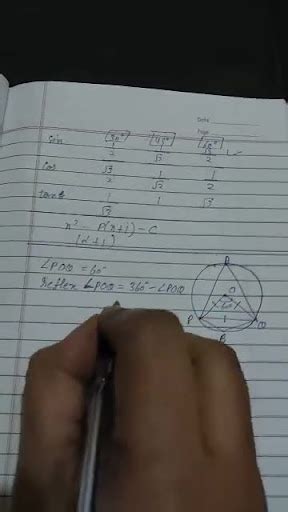 Date
Page
Sin 30° 45° 60°
1/2 1/√2 √3/2
Cos √3/2 1/√2 1/2
tanθ 1/√3 1 √3
x² - P(x+1) - C
(α+1)
∠POQ = 60°
Reflex ∠POQ = 360° - ∠POQ
R
O
60°
P Q
B